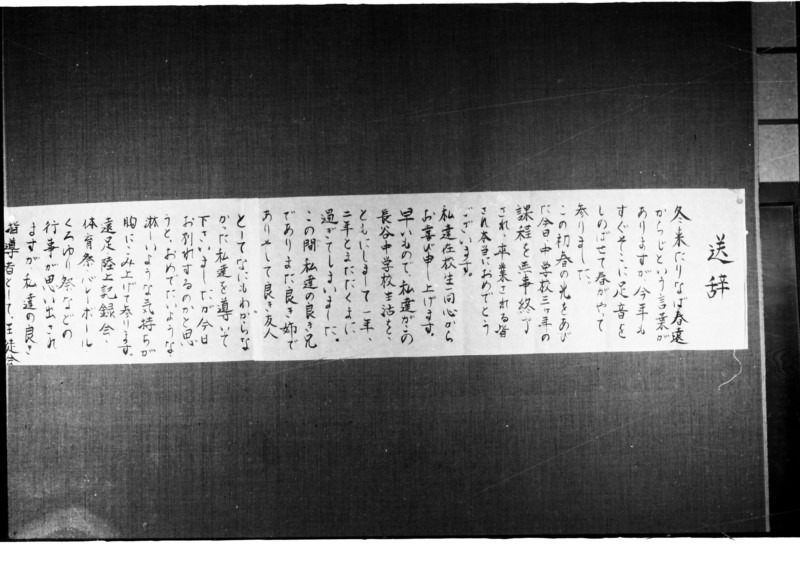 送辞
冬来たりなば春遠
からじという言葉が
ありますが今年も
すぐそこに足音を
しのばせて春がやって
参りました。
この初春の光をあび
た今日中学校三ヶ年の
課程を無事終了
され、卒業される皆
さ本当におめでとう
ございます。
私達在校生同心から
お喜び申し上げます。
早いもので、私達がこの
長谷中学校生活を、
ともにしまして一年、
二年とまたたくまに、
過ぎてしまいました。
この間私達の良き兄
でありまた良き姉で
ありそして良き友人
としてなにもわからな
かった私達を導いて
下さいましたが今日
お別れするのかと思
うと、おめでたいような、
淋しいような気持ちが
胸にこみ上げて参ります。
遠足陸上記録会、
体育祭、バレーボール
くろゆり祭などの
行事が思い出され
ますが、私達の良き
指導者として、生徒会